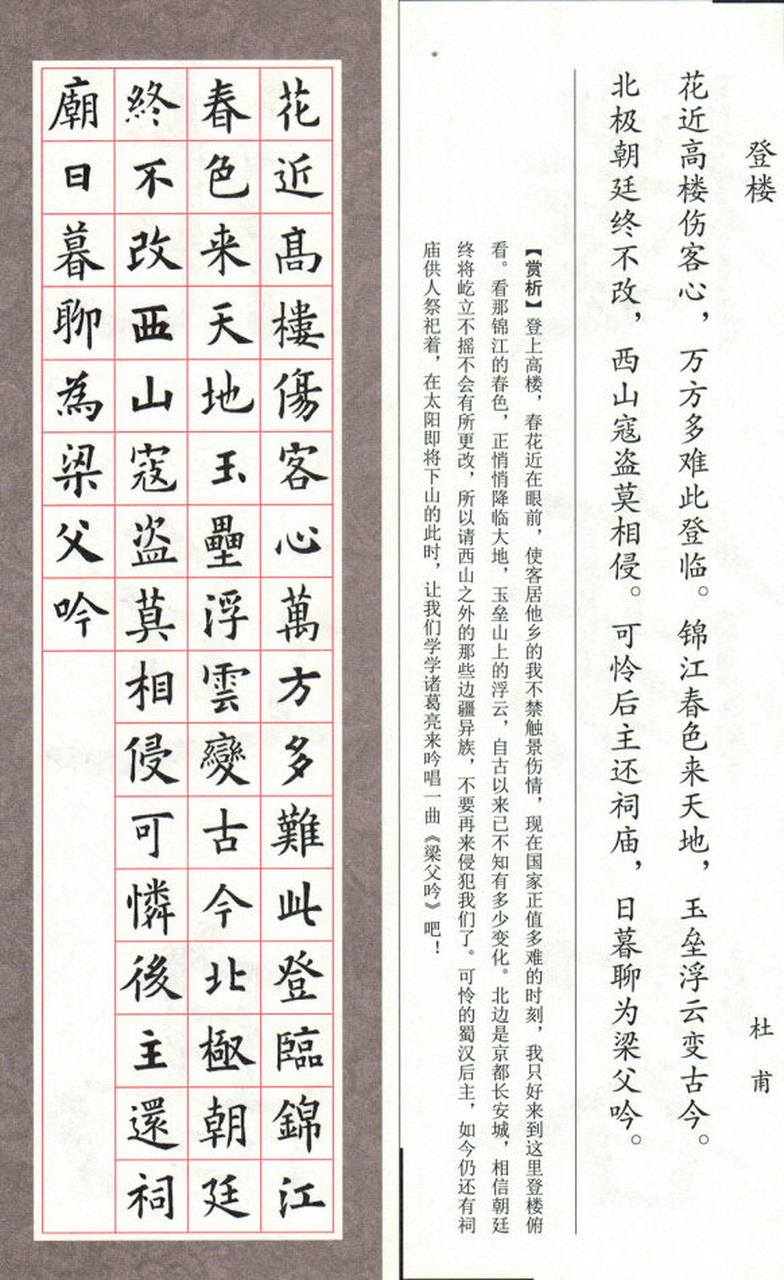 登楼
杜甫
花近高楼伤客心，万方多难此登临。锦江春色来天地，玉垒浮云变古今。
北极朝廷终不改，西山寇盗莫相侵。可怜后主还祠庙，日暮聊为梁父吟。
【赏析】登上高楼，春花近在眼前，使客居他乡的我不禁触景伤情，现在国家正值多难的时刻，我只好来到这里登楼俯
看。看那锦江的春色，正悄悄降临大地，玉垒山上的浮云，自古以来已不知有多少变化。北边是京都长安城，相信朝廷
终将屹立不摇不会有所更改，所以请西山之外的那些边疆异族，不要再来侵犯我们了。可怜的蜀汉后主，如今仍还有祠
庙供人祭祀着，在太阳即将下山的此时，让我们学学诸葛亮来吟唱一曲《梁父吟》吧！
花近高樓傷客心萬方多難此登臨錦江
春色来天地玉壘浮雲變古今北極朝廷
終不改西山寇盗莫相侵可憐後主還祠
廟日暮聊為梁父吟